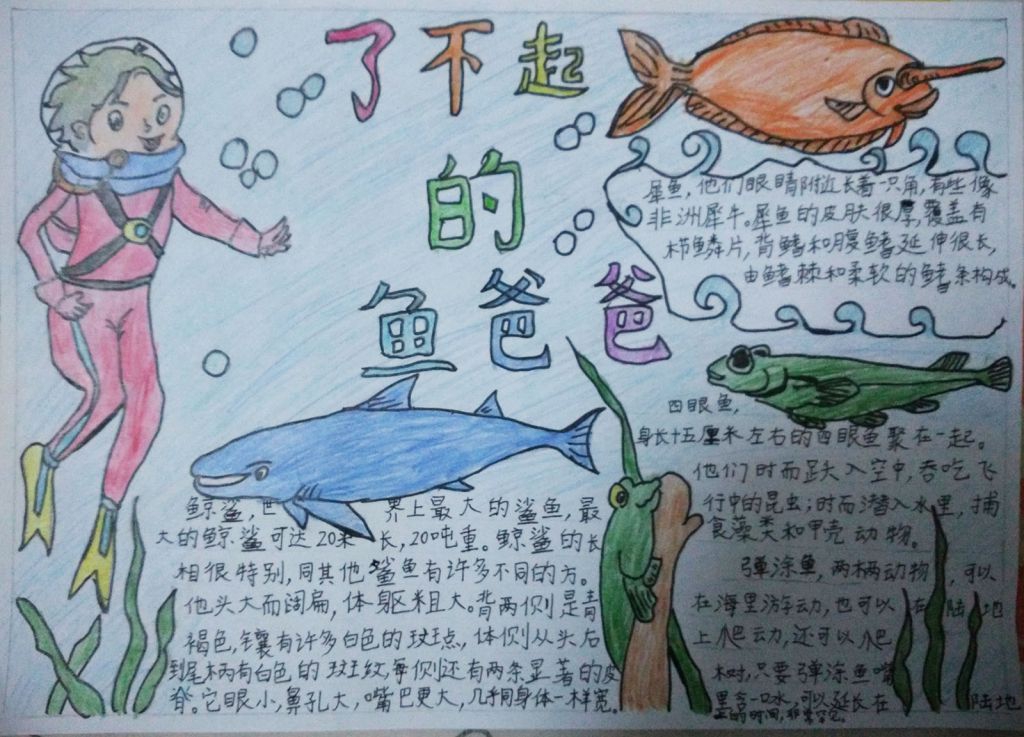 了不起
的
鱼爸爸
犀鱼，他们眼睛附近长着一只角，有些像
非洲犀牛。犀鱼的皮肤很厚，覆盖有
栉鳞片，背鳍和腹鳍延伸很长，
由鳍棘和柔软的鳍条构成。
四眼鱼，
身长十五厘米左右的四眼鱼聚在一起。
他们时而跃入空中，吞吃飞
行中的昆虫；时而潜入水里，捕
食藻类和甲壳动物。
弹涂鱼，两栖动物，可以
在海里游动，也可以在陆地
上爬动，还可以爬
树，只要弹涂鱼嘴
里含一口水，可以延长在陆地
上的时间，非常
鲸鲨，世界上最大的鲨鱼，最
大的鲸鲨可达20米长，20吨重。鲸鲨的长
相很特别，同其他鲨鱼有许多不同的方。
他头大而阔扁，体躯粗大。背两侧是青
褐色，镶有许多白色的斑点，体侧从头后
到尾柄有白色的斑纹，每侧还有两条显著的皮
脊。它眼小，鼻孔大，嘴巴更大，几乎同身体一样宽。